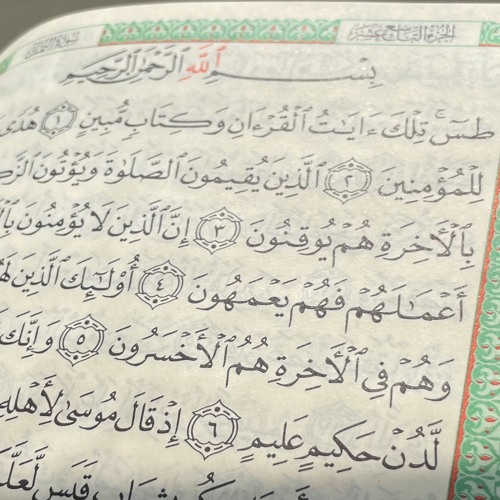 سورة النمل الجزء التاسع عشر
بِسْمِ ٱللَّهِ ٱلرَّحْمَٰنِ ٱلرَّحِيمِ
طسٓ ۚ تِلْكَ ءَايَٰتُ ٱلْقُرْءَانِ وَكِتَابٍ مُّبِينٍ ١ هُدًى
لِلْمُؤْمِنِينَ ٢ ٱلَّذِينَ يُقِيمُونَ ٱلصَّلَوٰةَ وَيُؤْتُونَ
بِٱلْأَخِرَةِ هُمْ يُوقِنُونَ ٣ إِنَّ ٱلَّذِينَ لَا يُؤْمِنُونَ
أَعْمَٰلَهُمْ فَهُمْ يَعْمَهُونَ ٤ أُو۟لَٰٓئِكَ ٱلَّذِينَ
وَهُمْ فِى ٱلْأَخِرَةِ هُمُ ٱلْأَخْسَرُونَ ٥ وَإِنَّكَ
لَّدُنْ حَكِيمٍ عَلِيمٍ ٦ إِذْ قَالَ مُوسَىٰ لِأَهْلِهِۦ